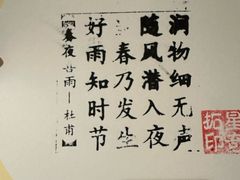 春夜喜雨—杜甫
好雨知时节
春乃发生
随风潜入夜
润物细无声
拓印